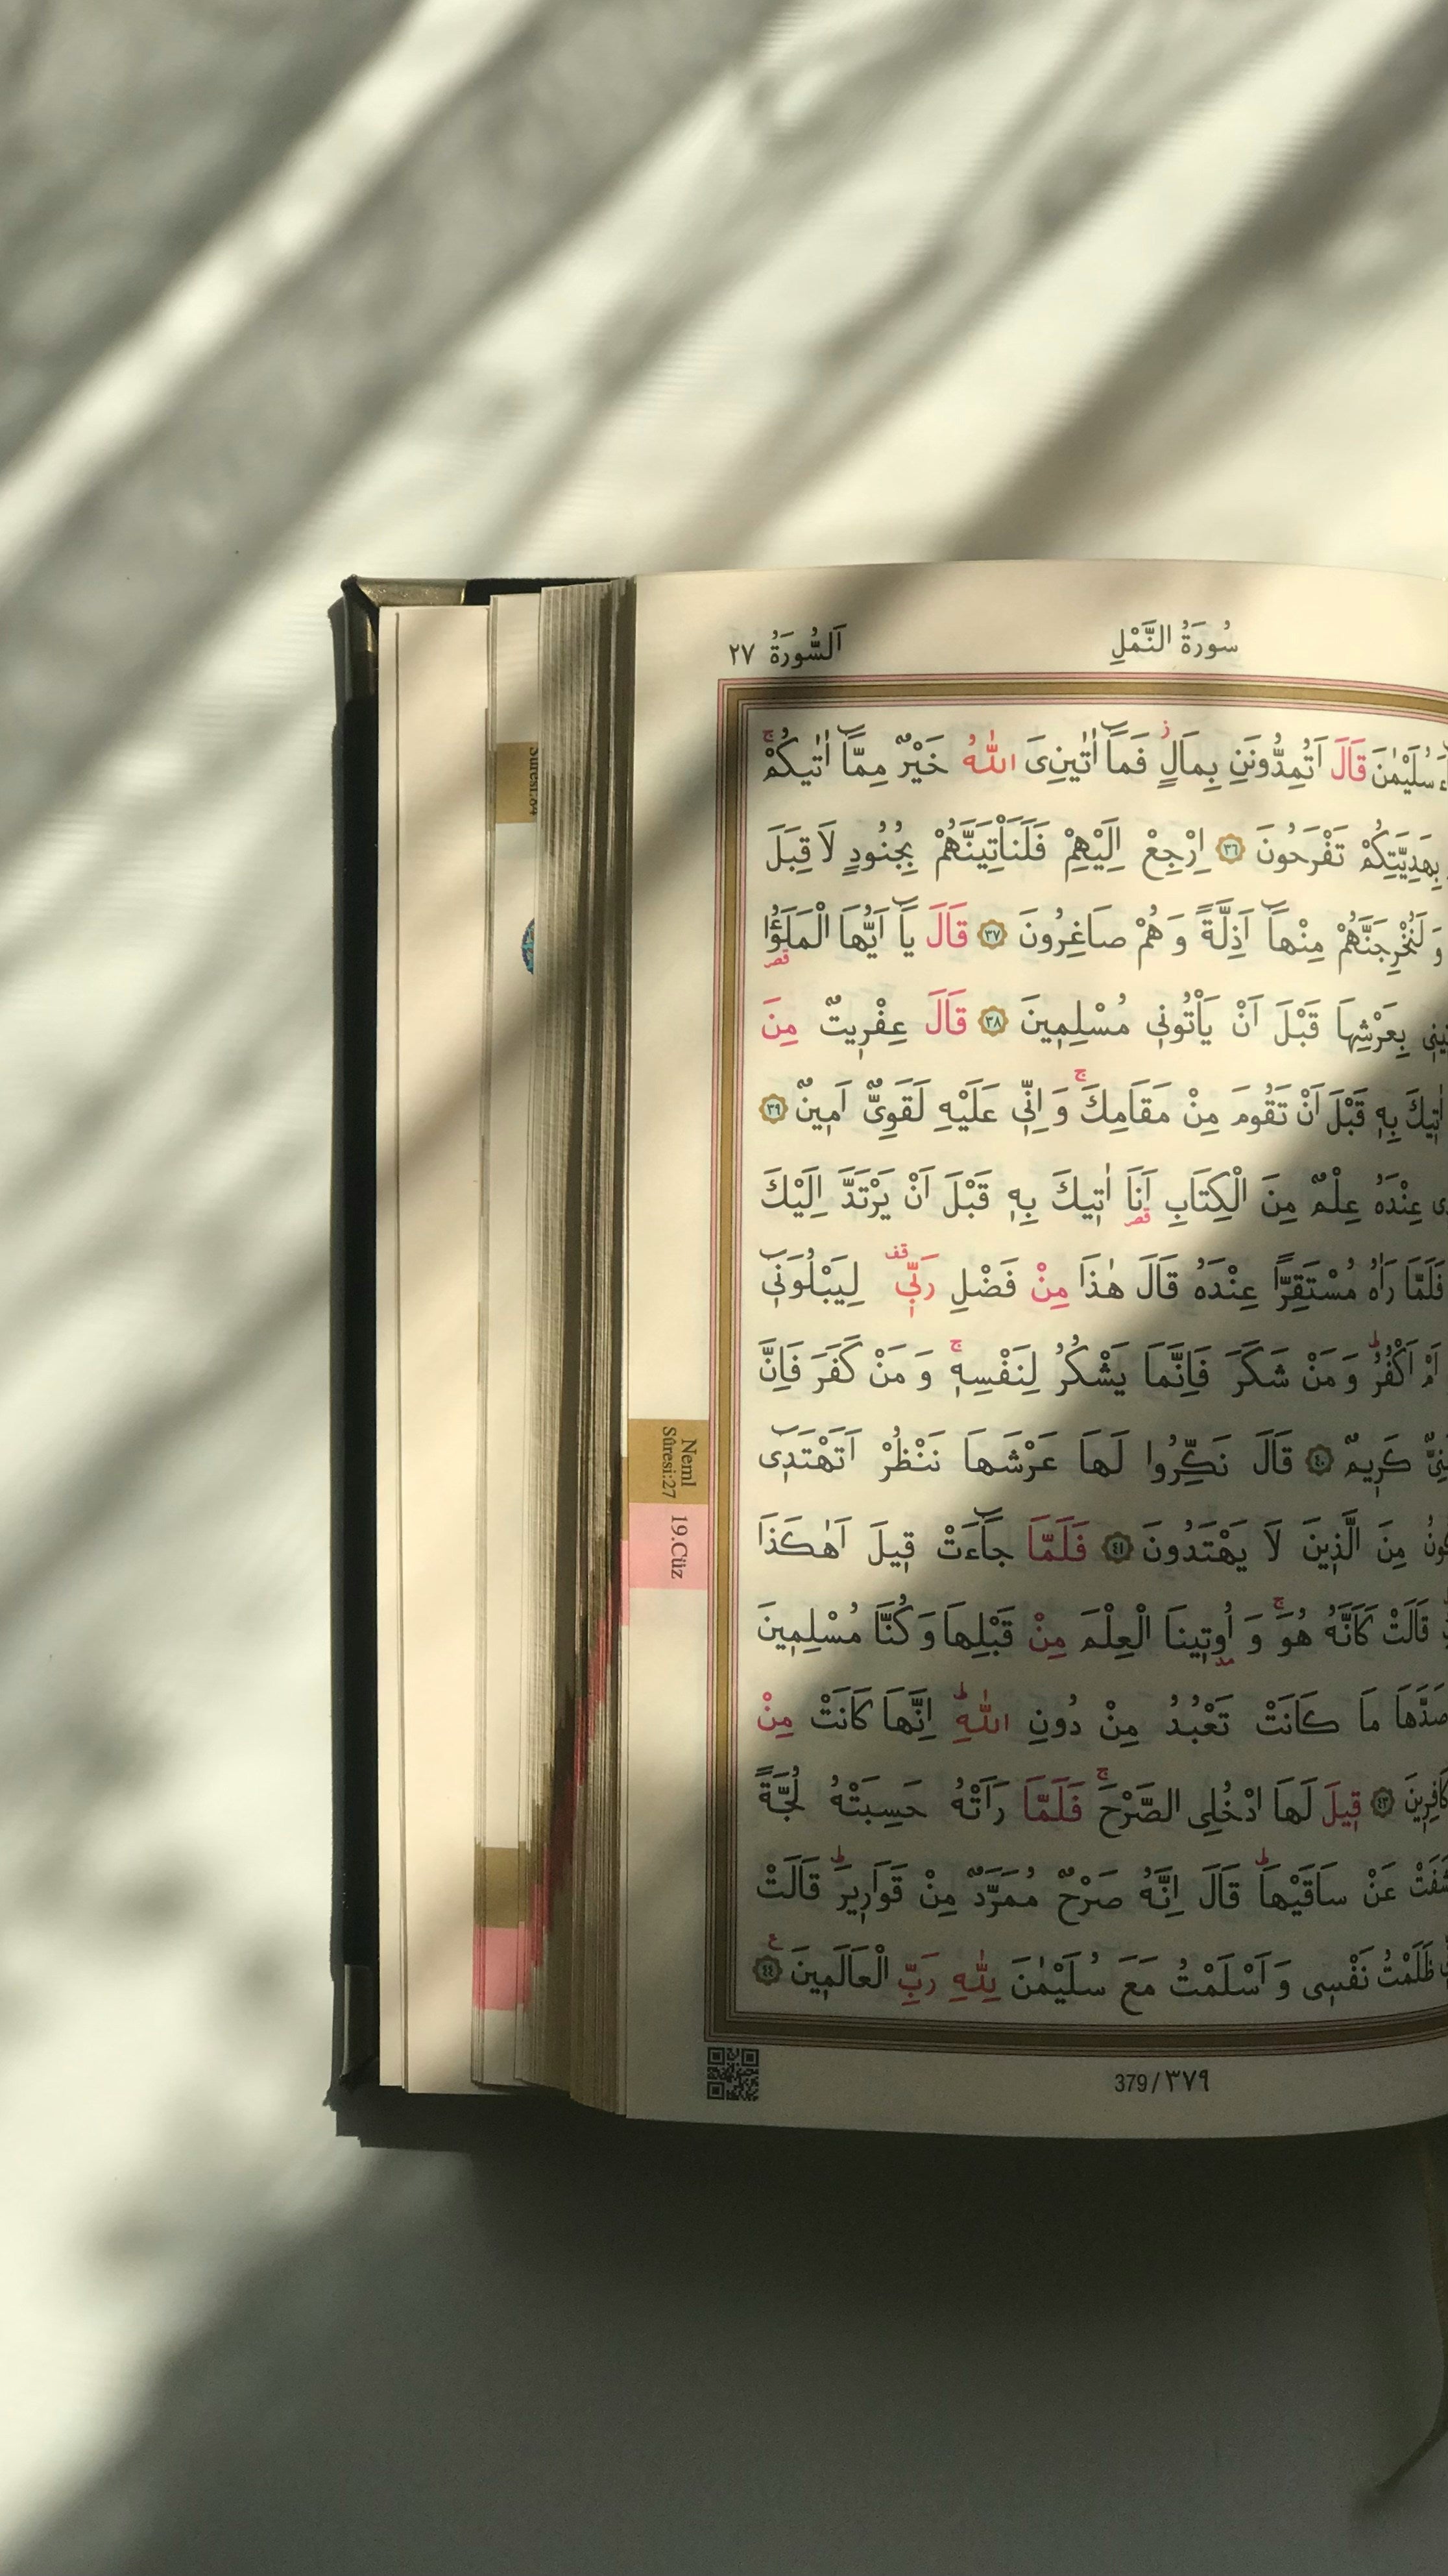 سُورَةُ النَّمْلِ
اَلسُّورَةُ ٢٧
سُلَيْمٰنَ قَالَ اَتُمِدُّونَنِ بِمَالٍۘ فَمَٓا اٰتٰينِيَ اللّٰهُ خَيْرٌ مِمَّٓا اٰتٰيكُمْۚ
بِهَدِيَّتِكُمْ تَفْرَحُونَ ٣٦ اِرْجِعْ اِلَيْهِمْ فَلَنَأْتِيَنَّهُمْ بِجُنُودٍ لَا قِبَلَ
وَلَنُخْرِجَنَّهُمْ مِنْهَٓا اَذِلَّةً وَهُمْ صَاغِرُونَ ٣٧ قَالَ يَٓا اَيُّهَا الْمَلَؤُ۬ا
بِعَرْشِهَا قَبْلَ اَنْ يَأْتُونِي مُسْلِمِينَ ٣٨ قَالَ عِفْرِيتٌ مِنَ
اٰتِيكَ بِهِ قَبْلَ اَنْ تَقُومَ مِنْ مَقَامِكَۚ وَاِنِّي عَلَيْهِ لَقَوِيٌّ اَمِينٌ ٣٩
عِنْدَهُ عِلْمٌ مِنَ الْكِتَابِ اَنَا۬ اٰتِيكَ بِهِ قَبْلَ اَنْ يَرْتَدَّ اِلَيْكَ
فَلَمَّا رَاٰهُ مُسْتَقِرًّا عِنْدَهُ قَالَ هٰذَا مِنْ فَضْلِ رَبِّي لِيَبْلُوَنِٓي
اَمْ اَكْفُرُۜ وَمَنْ شَكَرَ فَاِنَّمَا يَشْكُرُ لِنَفْسِهِۚ وَمَنْ كَفَرَ فَاِنَّ
كَرِيمٌ ٤٠ قَالَ نَكِّرُوا لَهَا عَرْشَهَا نَنْظُرْ اَتَهْتَدِٓي
مِنَ الَّذِينَ لَا يَهْتَدُونَ ٤١ فَلَمَّا جَٓاءَتْ قِيلَ اَهٰكَذَا
قَالَتْ كَاَنَّهُ هُوَۚ وَاُو۫تِينَا الْعِلْمَ مِنْ قَبْلِهَا وَكُنَّا مُسْلِمِينَ
مَا كَانَتْ تَعْبُدُ مِنْ دُونِ اللّٰهِۜ اِنَّهَا كَانَتْ مِنْ
كَافِرِينَ ٤٣ قِيلَ لَهَا ادْخُلِي الصَّرْحَۚ فَلَمَّا رَاَتْهُ حَسِبَتْهُ لُجَّةً
عَنْ سَاقَيْهَاۜ قَالَ اِنَّهُ صَرْحٌ مُمَرَّدٌ مِنْ قَوَارِيرَۜ قَالَتْ
ظَلَمْتُ نَفْسِي وَاَسْلَمْتُ مَعَ سُلَيْمٰنَ لِلّٰهِ رَبِّ الْعَالَمِينَ ٤٤
Neml
Sûresi:27
19.Cüz
379/٣٧٩